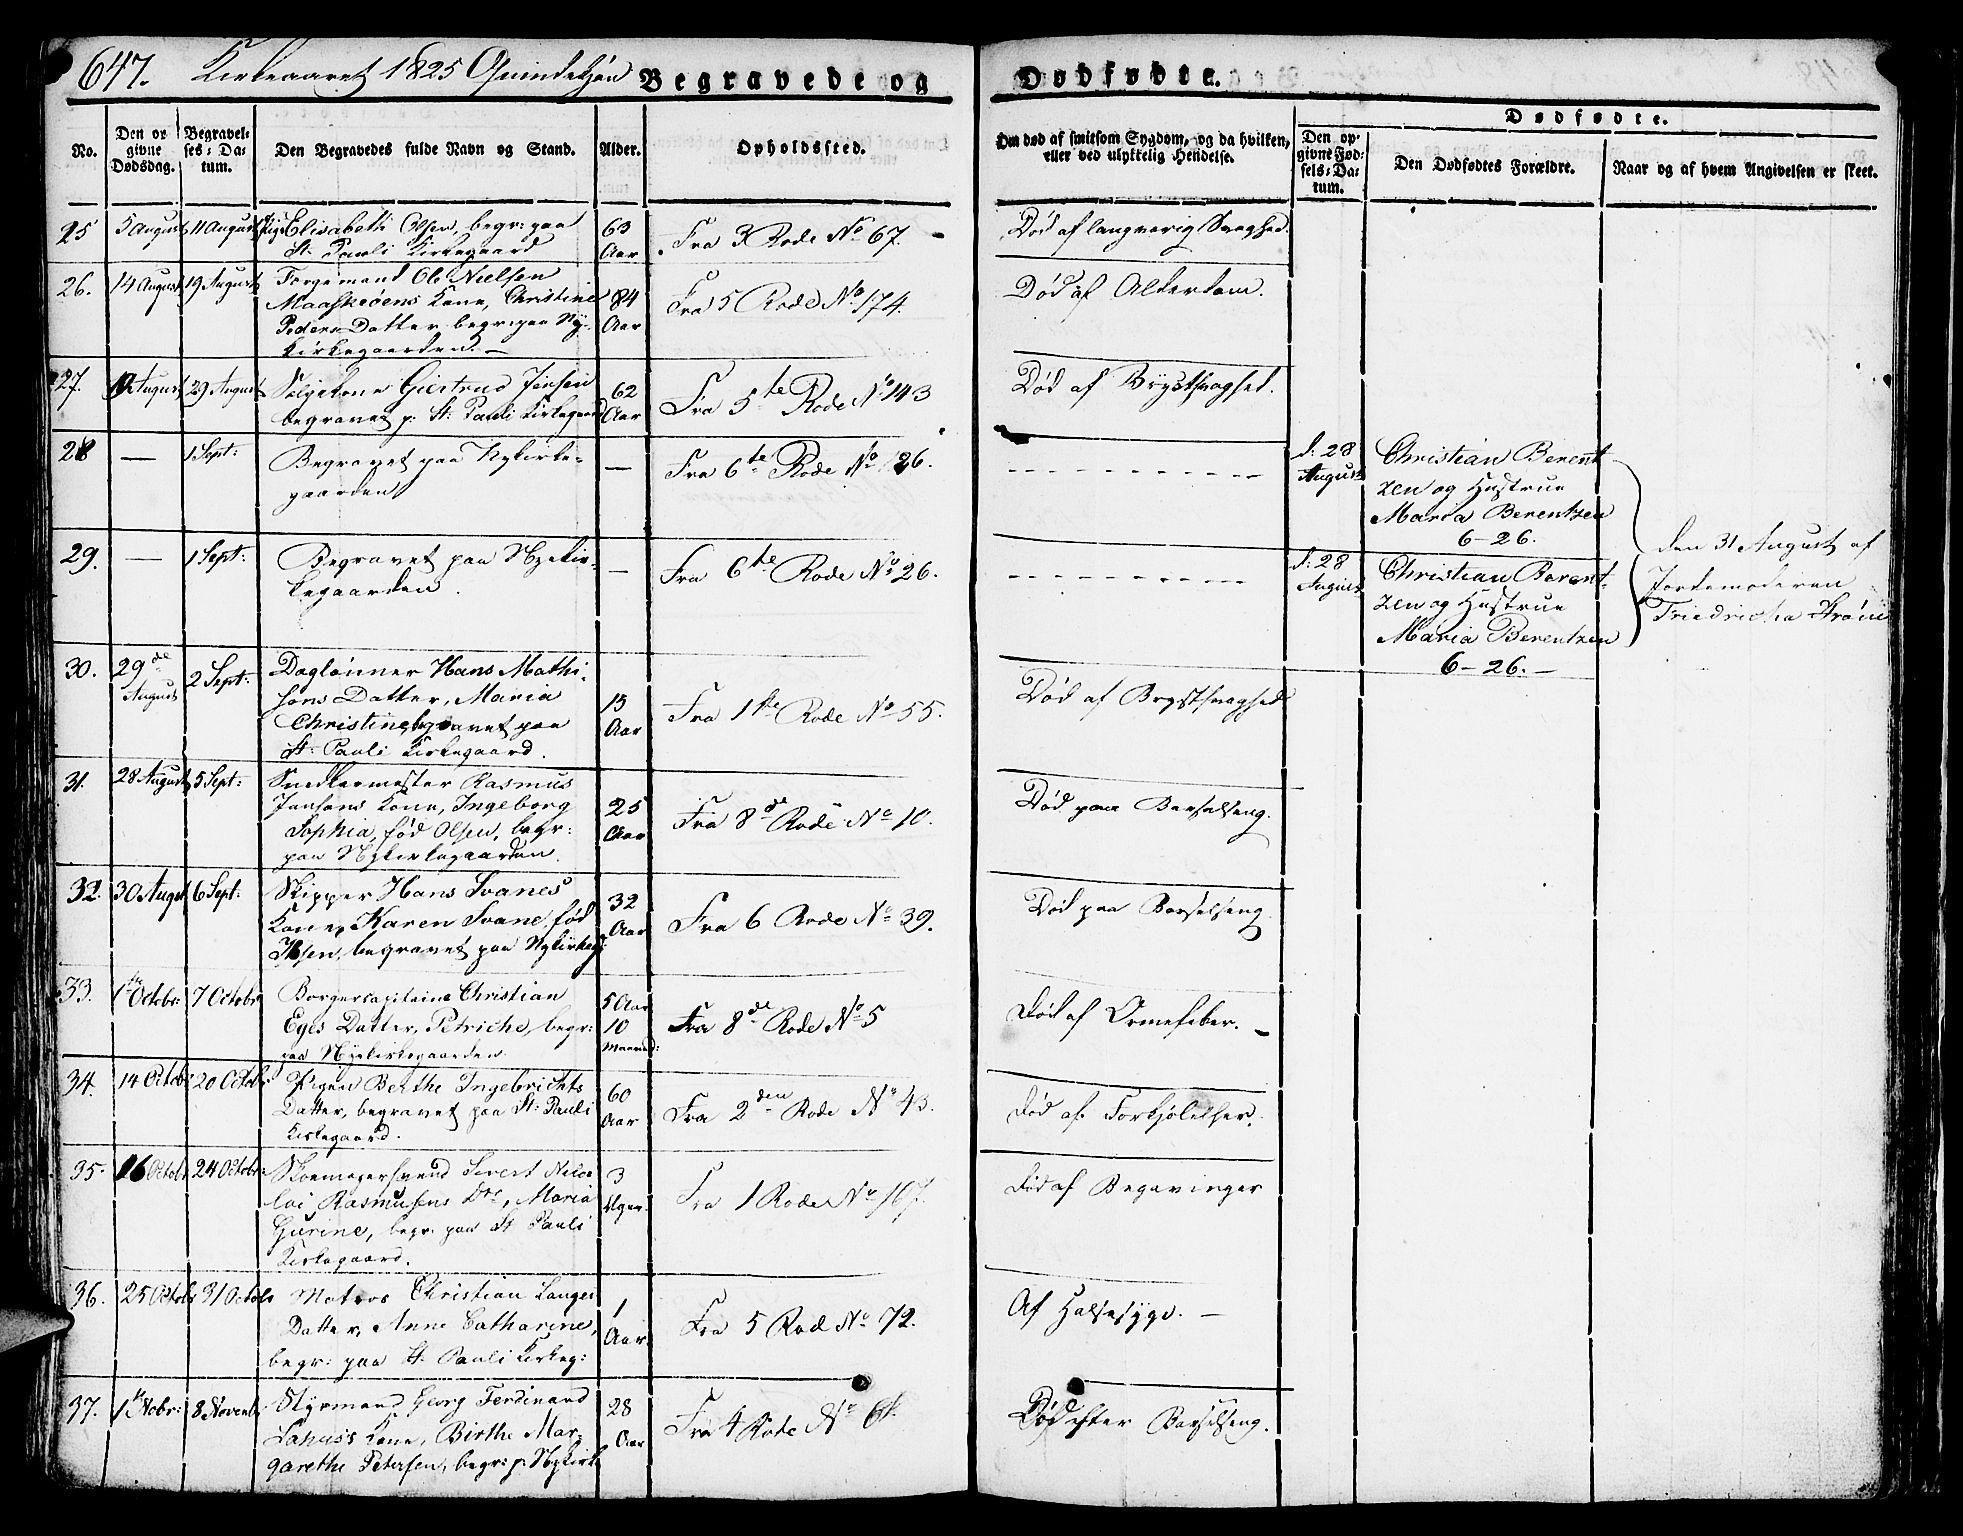 647. Kirkeaaret 1825 Qvindekjøn Begravede og Dødfødte.
No. Den opgivne Dødsdag. Begravelses-Datum. Den Begravedes fulde Navn og Stand. Alder. Opholdssted. Om død af smitsom Sygdom, og da hvilken, eller ved ulykkelig Hendelse.
Dødfødte.
Den opgivne Fødsels-Datum. Den Dødfødtes Forældre. Naar og af hvem Angivelsen er skeet.
25 5 August 11 August Pige Elisabeth Olsen, begr: paa
St. Pauli Kirkegaard
63 Aar
Fra 3 Rode No 67.
Død af langvarig Svaghed.
26. 14 August 19 August Ole Nielsen
Kone, Christine
Peders Datter, begr: paa Ny-
kirkegaarden. —
84 Aar
Fra 5 Rode No 174.
Død af Alderdom.
27. August 29 August Giertrud Jensen
begravet p. St. Pauli Kirkegaard
62 Aar
Fra 5te Rode No 143
Død af Brystsvaghed.
28 — 1 Sept: Begravet paa Nykirke-
gaarden
—
Fra 6te Rode No 26.
d. 28 August
Christian Berent-
zen og Hustrue
Maria Berentzen
6-26.
29. — 1 Sept: Begravet paa Nyekir-
kegaarden.
—
Fra 6te Rode No 26.
d. 28 August
Christian Berent-
zen og Hustrue
Maria Berentzen
6-26. —
den 31 August af
Jordemoderen
Friedricha
30. 29de August 2 Sept: Daglønner Hans Mathi-
sens Datter, Maria
Christine, begravet paa
St. Pauli Kirkegaard.
13 Aar
Fra 1ste Rode No 55.
Død af Brystsvaghed
31. 28 August 5 Sept: Snedkermester Rasmus
Jansens Kone, Ingeborg
Sophia, fød Olsen, begr:
paa Nykirkegaarden.
25 Aar
Fra 8de Rode No 10.
Død paa Barselseng.
32. 30 August 6 Sept: Skipper Hans Svanes
Kone, Karen Svane, fød
Ibsen, begravet paa Nykirkeg:
32 Aar
Fra 6 Rode No 39.
Død paa Barselseng.
33. 1ste Octobr: 7 Octobr Borgercapitaine Christian
Eges Datter, Petriche, begr:
paa Nyekirkegaarden.
5 Aar
10 Maaned:
Fra 8de Rode No 5
Død af Ormefeber. —
34. 14 Octobr 20 Octobr Pigen Berthe Ingebrichts
Datter, begravet paa St: Pauli
Kirkegaard.
60 Aar
Fra 2den Rode No 43.
Død af Forkjølelser.
35. 16 Octobr 24 Octobr: Skomagersvend Sivert Nico-
lai Rasmusens Dtr, Maria
Gurine, begr. paa St Pauli
Kirkegaard.
3 Uger.
Fra 1 Rode No 167.
Død af Begavinger
36. 25 Octobr 31 Octobr Matros Christian Langes
Datter, Anne Catharine,
begr: paa St. Pauli Kirkeg:
1 Aar
Fra 5 Rod No 72.
Af Halsesyge. —
37. 1ste Nobr: 8 Novemb Styrmand Georg Ferdinand
Kone, Birthe Mar-
garethe Petersen, begr: p: Nykirk
28 Aar
Fra 4 Rode No
Død efter Barselseng.